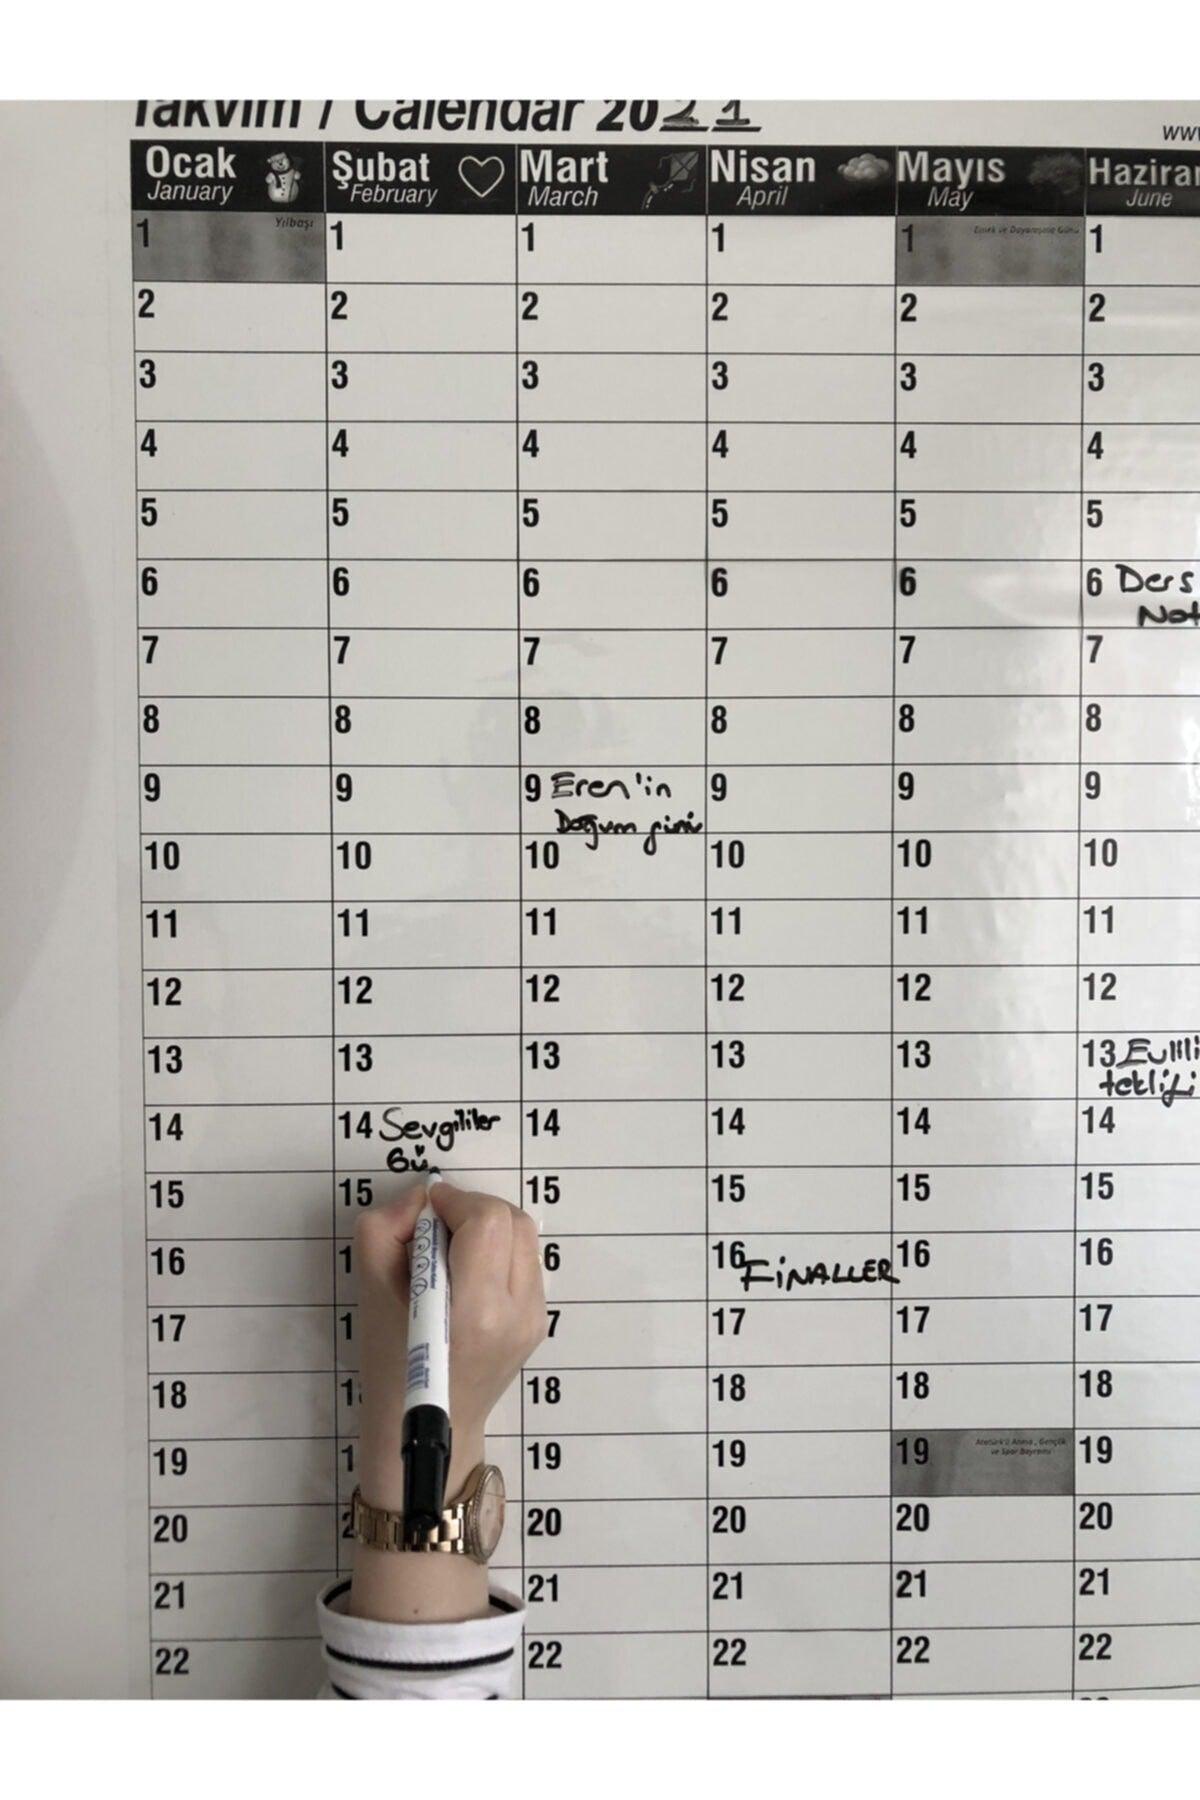 Takvim / Calendar 2021
www
Ocak Şubat Mart Nisan Mayıs Haziran
January February March April May June
1 Yılbaşı 1 1 1 1 Emek ve Dayanışma Günü 1
2 2 2 2 2 2
3 3 3 3 3 3
4 4 4 4 4 4
5 5 5 5 5 5
6 6 6 6 6 6 Ders
Not
7 7 7 7 7 7
8 8 8 8 8 8
9 9 9 Eren'in 9 9 9
Doğum günü
10 10 10 10 10 10
11 11 11 11 11 11
12 12 12 12 12 12
13 13 13 13 13 13 Evlili
teklifi
14 14 Sevgililer 14 14 14 14
Gü
15 15 15 15 15 15
16 1 6 16 FİNALLER 16 16
17 1 7 17 17 17
18 1 18 18 18 18
19 1 19 19 19 Atatürk'ü Anma, Gençlik 19
ve Spor Bayramı
20 2 20 20 20 20
21 21 21 21 21
22 22 22 22 22